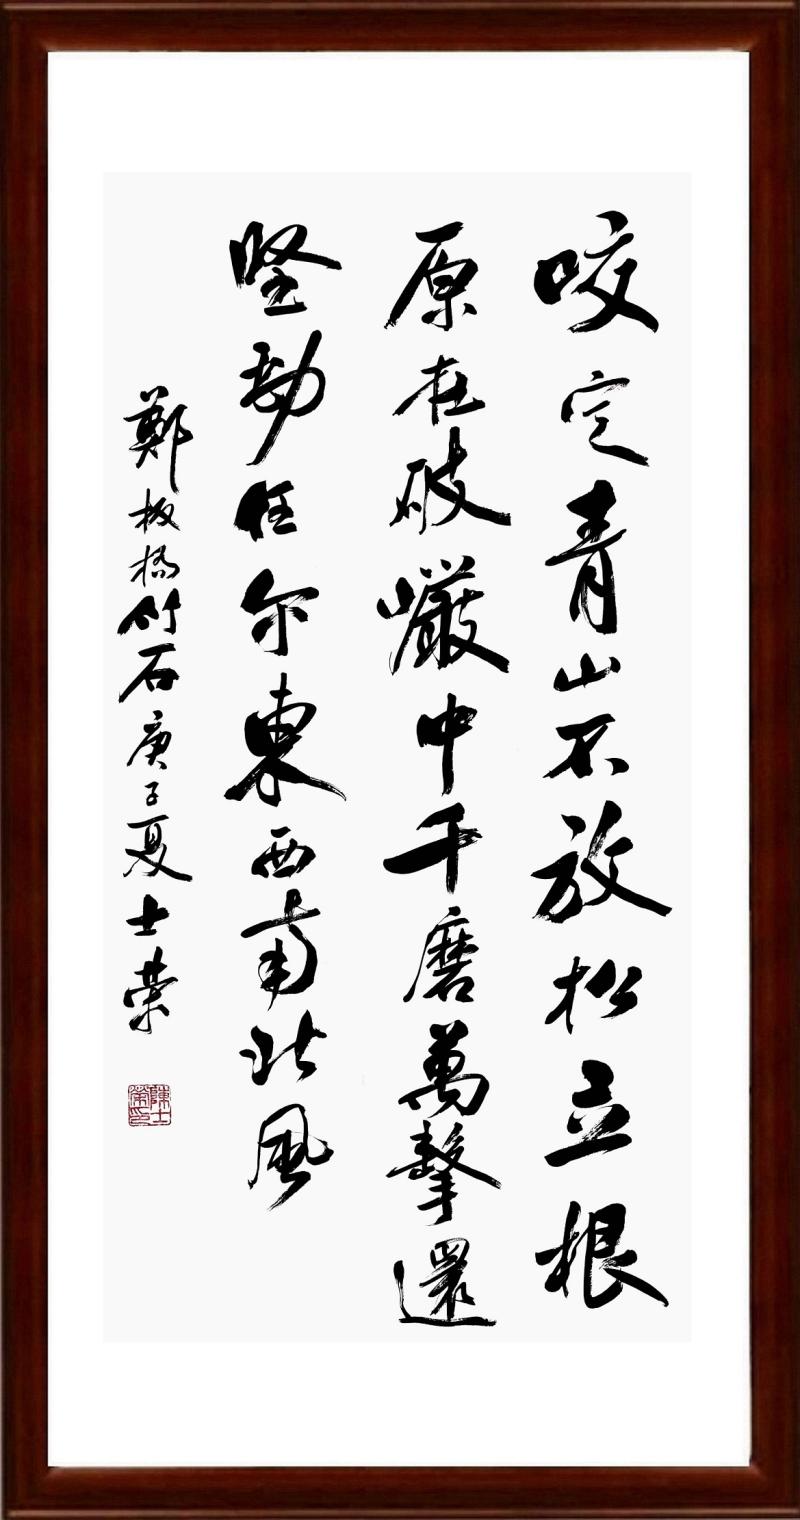 咬定青山不放松立根
原在破巖中千磨萬擊還
堅劲任尔東西南北風
鄭板橋竹石庚子夏士榮
陳士榮印